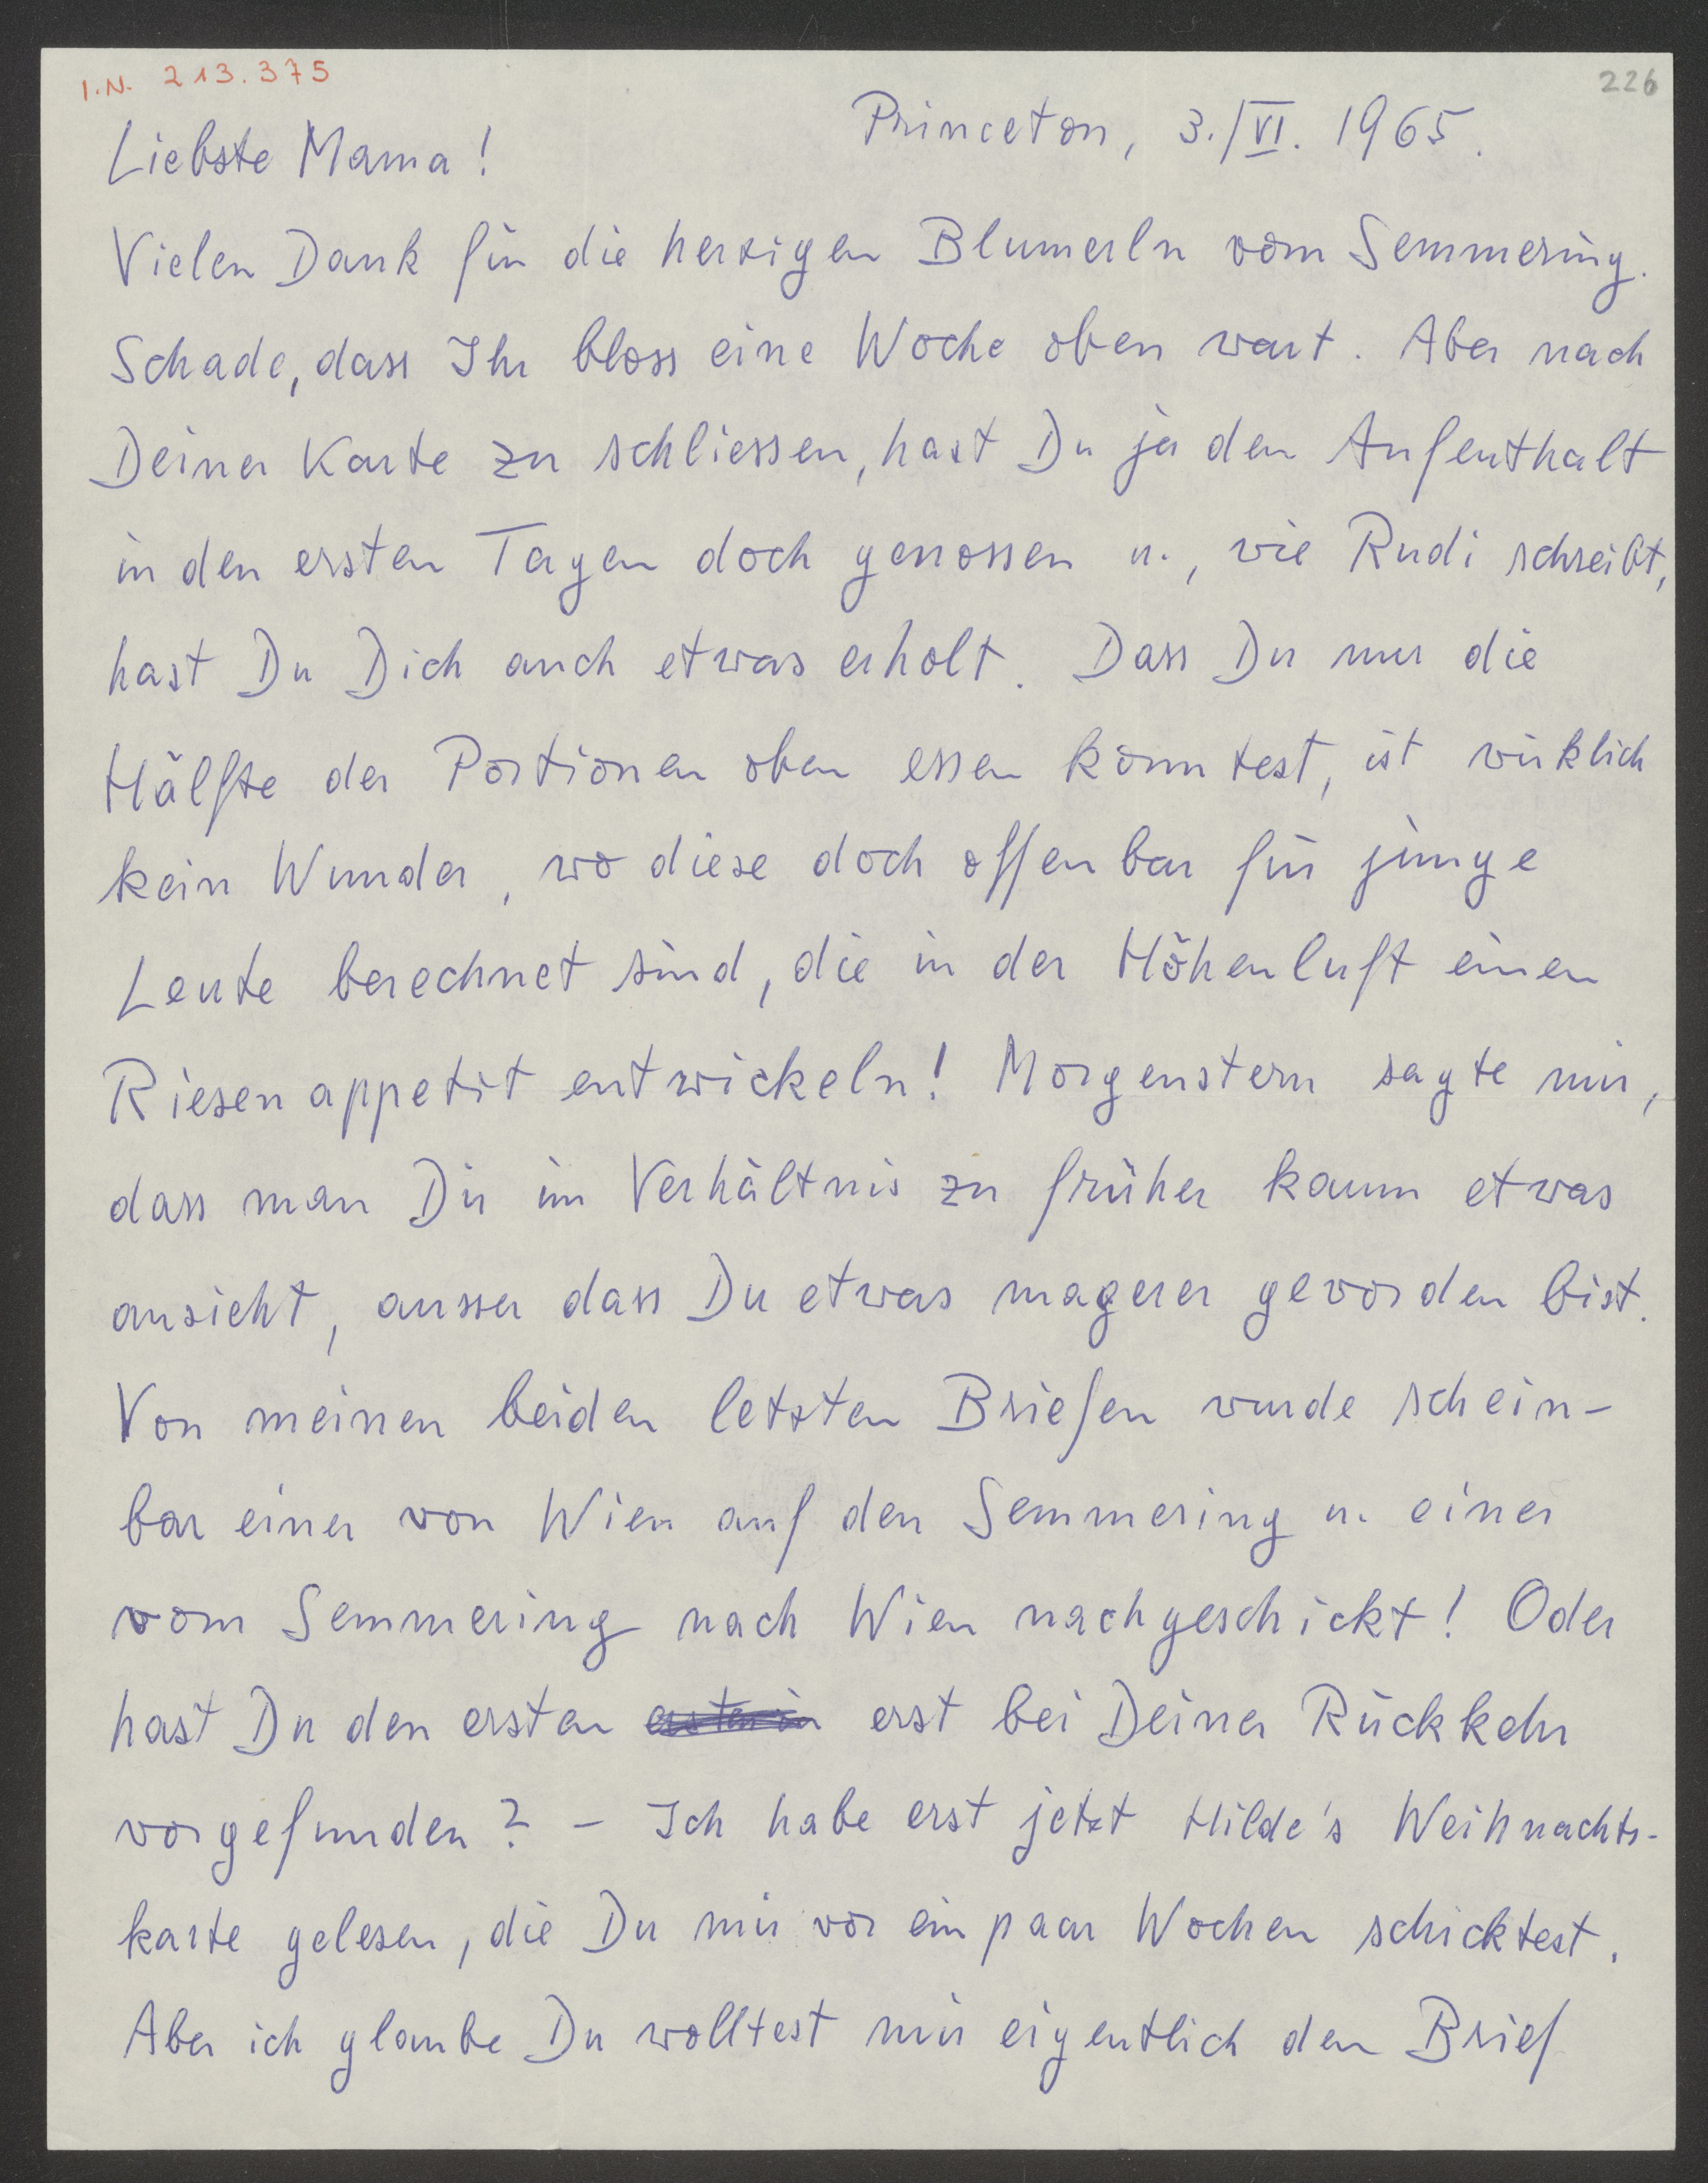 I.N. 213.375
226
Princeton, 3./VI. 1965.
Liebste Mama!
Vielen Dank für die herzigen Blumerln vom Semmering.
Schade, dass Ihr bloss eine Woche oben wart. Aber nach
Deiner Karte zu schliessen, hast Du ja den Aufenthalt
in den ersten Tagen doch genossen u., wie Rudi schreibt,
hast Du Dich auch etwas erholt. Dass Du nur die
Hälfte der Portionen oben essen konntest, ist wirklich
kein Wunder, wo diese doch offenbar für junge
Leute berechnet sind, die in der Höhenluft einen
Riesenappetit entwickeln! Morgenstern sagte mir,
dass man Dir im Verhältnis zu früher kaum etwas
ansieht, ausser dass Du etwas magerer geworden bist.
Von meinen beiden letzten Briefen wurde schein-
bar einer von Wien auf den Semmering u. einer
vom Semmering nach Wien nachgeschickt! Oder
hast Du den ersten erst bei Deiner Rückkehr
vorgefunden? – Ich habe erst jetzt Hilde's Weihnachts-
karte gelesen, die Du mir vor ein paar Wochen schicktest.
Aber ich glaube Du wolltest mir eigentlich den Brief